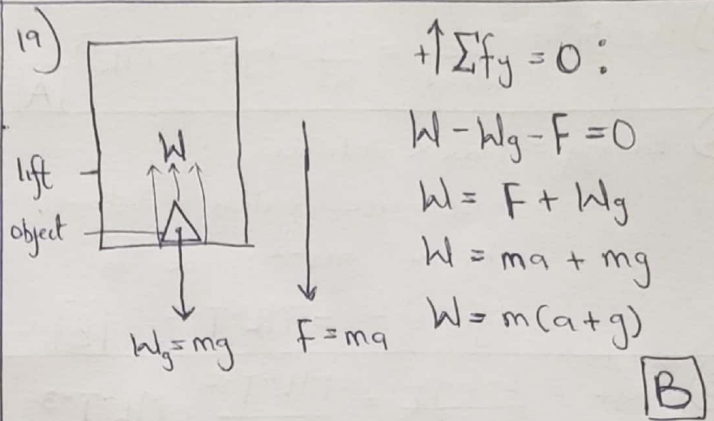 19)
W
lift
object
Wg=mg
F=ma
+↑Σfy=0:
W-Wg-F=0
W=F+Wg
W=ma+mg
W=m(a+g)
B